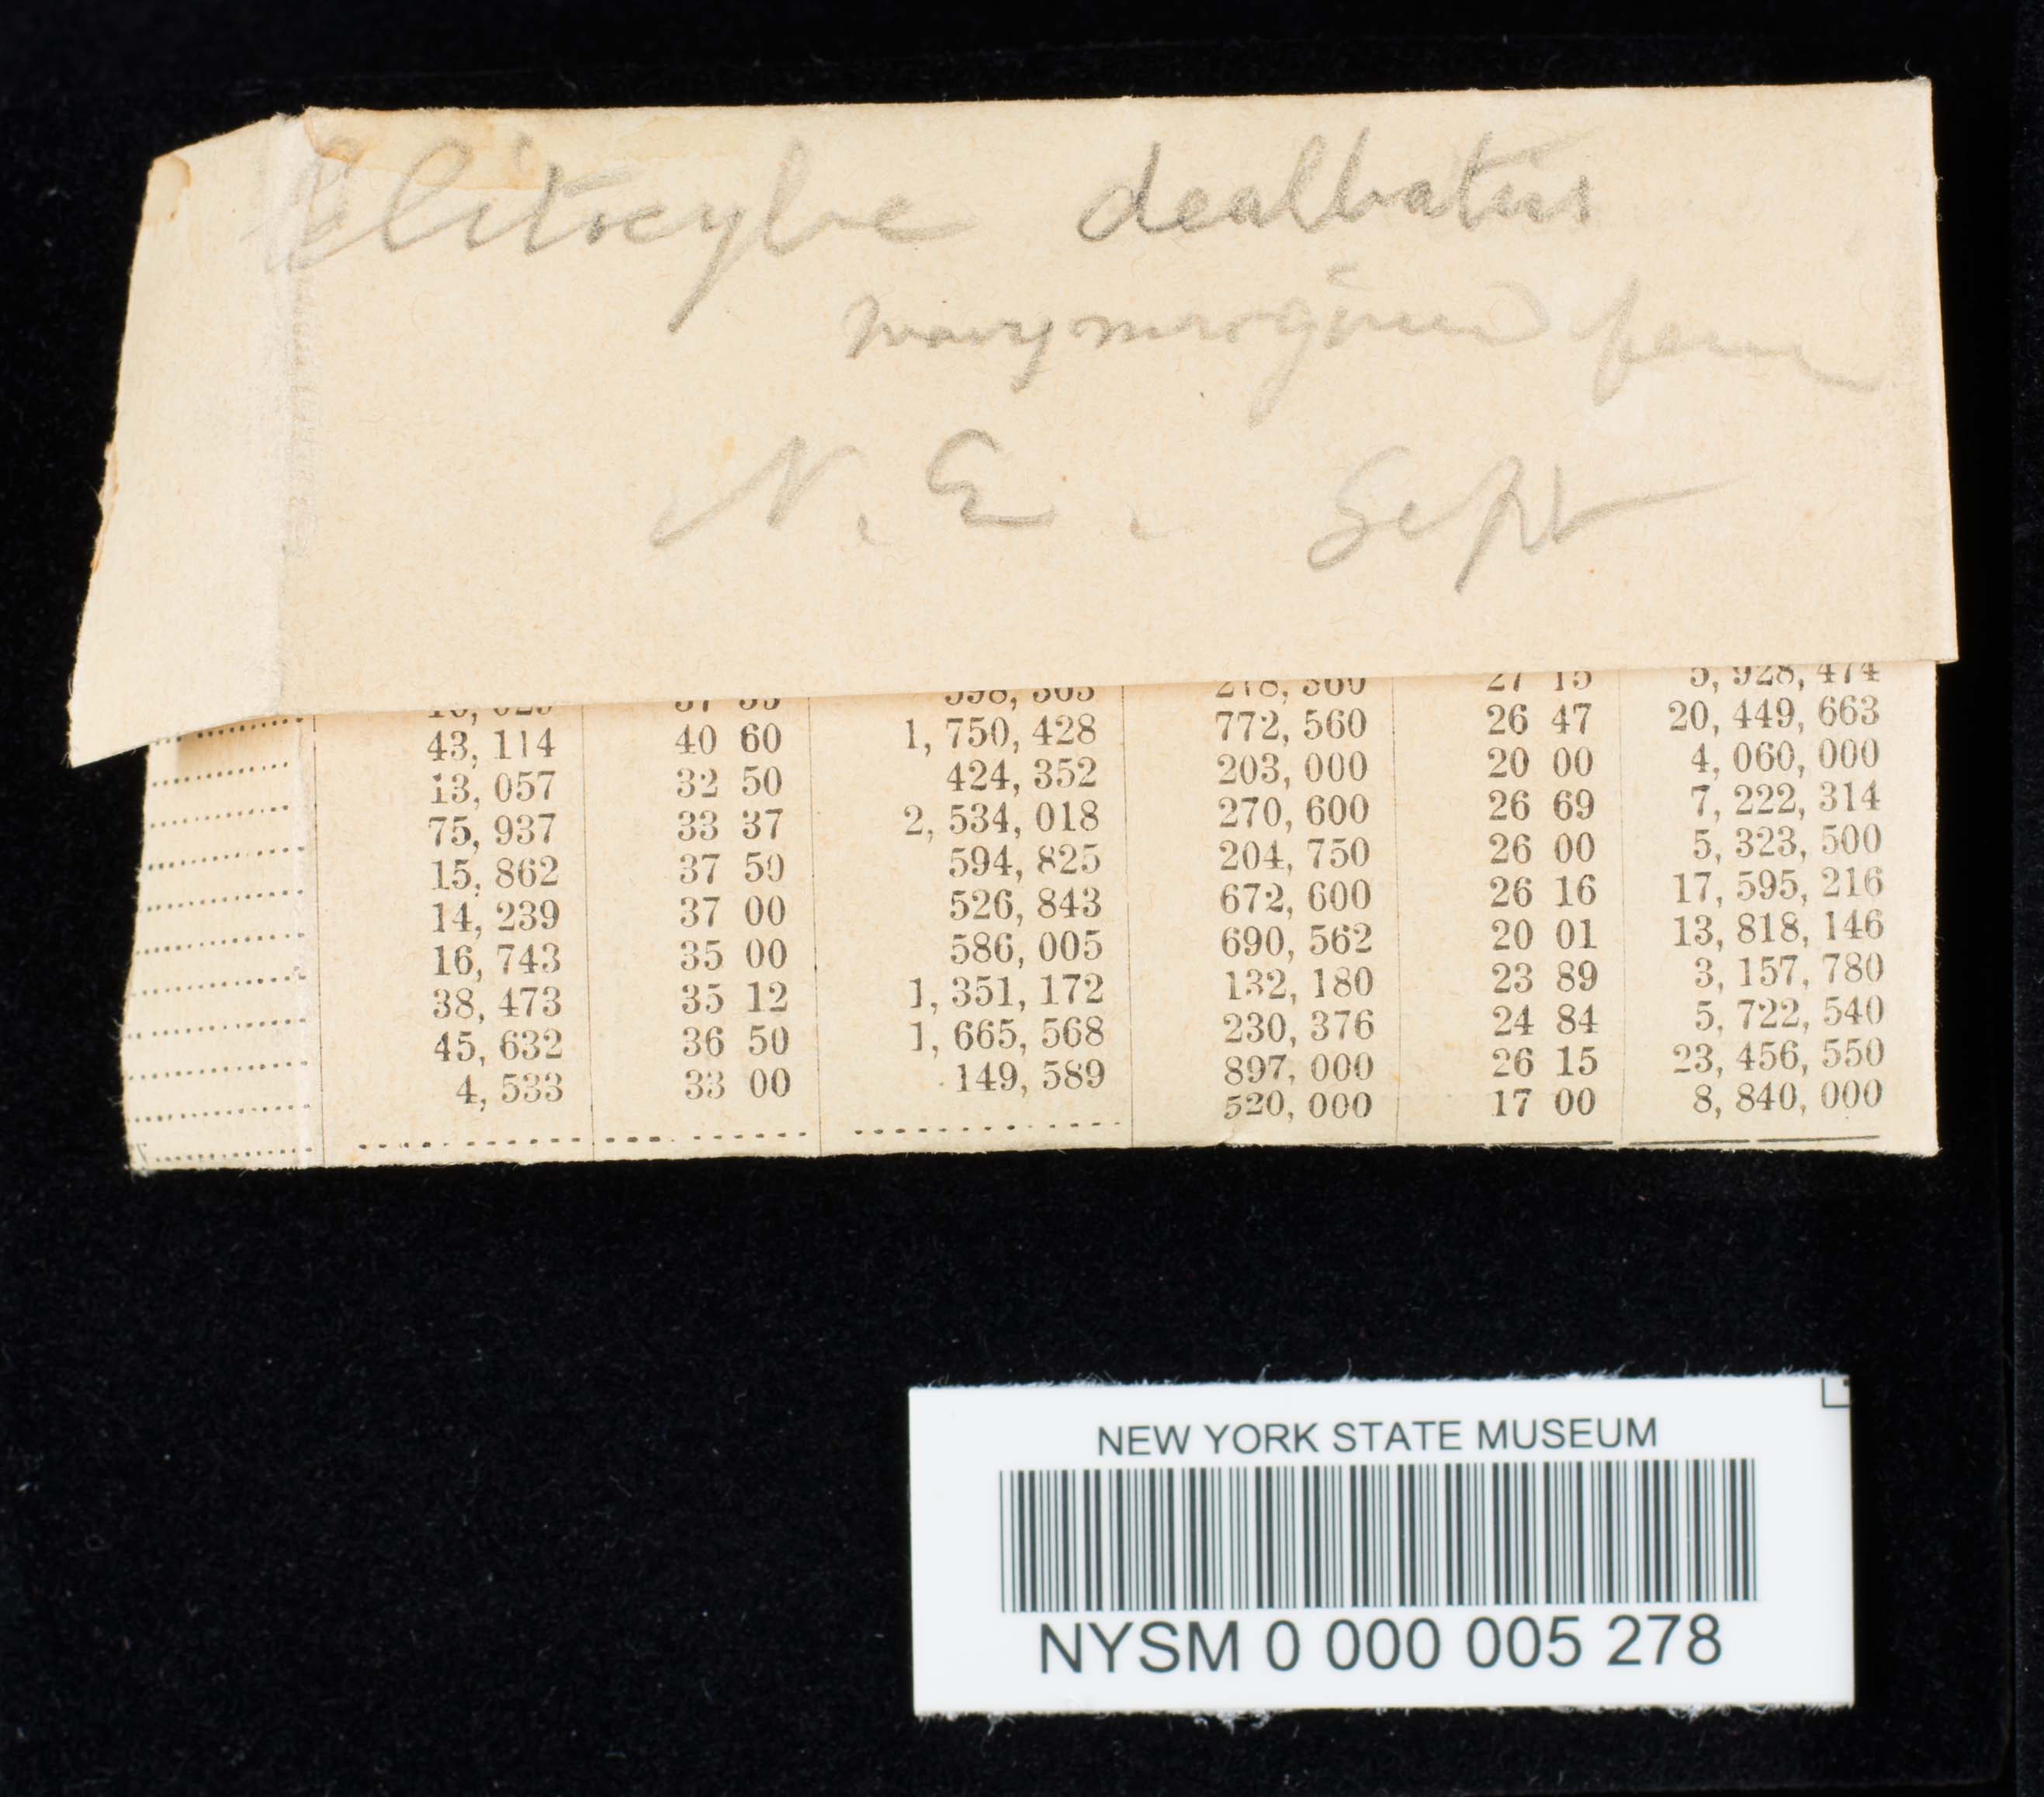 Clitocybe dealbatus
wavy margined form
N. E. Sept
5, 928, 474
43, 114 40 60 1, 750, 428 772, 560 26 47 20, 449, 663
13, 057 32 50 424, 352 203, 000 20 00 4, 060, 000
75, 937 33 37 2, 534, 018 270, 600 26 69 7, 222, 314
15, 862 37 50 594, 825 204, 750 26 00 5, 323, 500
14, 239 37 00 526, 843 672, 600 26 16 17, 595, 216
16, 743 35 00 586, 005 690, 562 20 01 13, 818, 146
38, 473 35 12 1, 351, 172 132, 180 23 89 3, 157, 780
45, 632 36 50 1, 665, 568 230, 376 24 84 5, 722, 540
4, 533 33 00 149, 589 897, 000 26 15 23, 456, 550
520, 000 17 00 8, 840, 000
NEW YORK STATE MUSEUM
NYSM 0 000 005 278